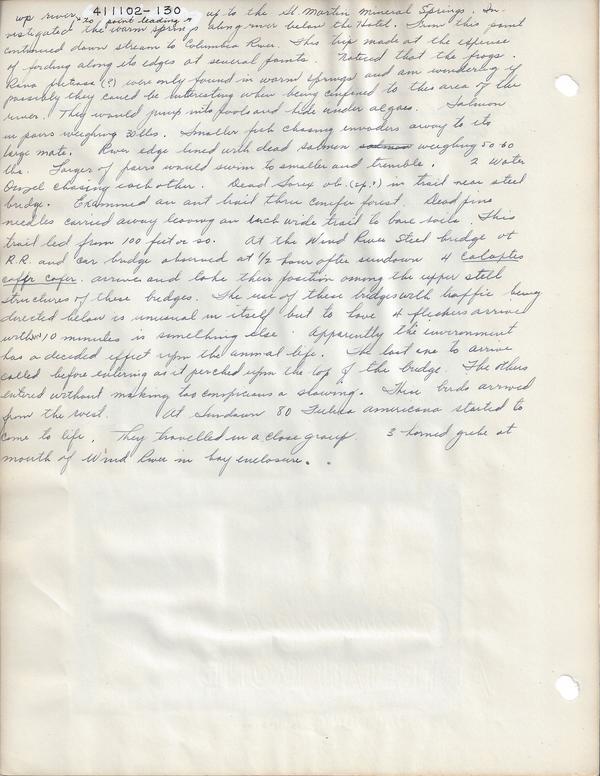 411102-130
up river to point leading up to the St Martin Mineral Springs. In-
vestigated the warm springs along river below the Hotel. From this point
continued down stream to Columbia River. This trip made at the expense
of fording along its edges at several points. Noticed that the frogs.
Rana (?) were only found in warm springs and am wondering if
possibly they could be interesting when being confined to this area of the
river. They would jump into pools and hide under algae. Salmon
in pairs weighing 30 lbs. Smaller fish chasing invaders away to its
large mate. River edge lined with dead salmon salmon weighing 50-60
lbs. Larger of pairs would swim to smaller and tremble. 2 Water
Ouzel chasing each other. Dead Sorex ob. (sp.?) in trail near steel
bridge. Examined an ant trail thru conifer forest. Dead pine
needles carried away leaving an inch wide trail to bare soil. This
trail led from 100 feet or so. At the Wind River Steel bridge at
R.R. and car bridge observed at 1/2 hour after sundown 4 Colaptes
cafer cafer. arrive and take their position among the upper steel
structures of these bridges. The use of these bridges with traffic being
directed below is unusual in itself but to have 4 flickers arrive
within 10 minutes is something else. Apparently the environment
has a decided effect upon the animal life. The last one to arrive
called before entering as it perched upon the top of the bridge. The others
entered without making too conspicuous a showing. These birds arrived
from the west. At Sundown 80 Fulica americana started to
come to life. They travelled in a close group. 3 horned grebe at
mouth of Wind River in bay enclosure.